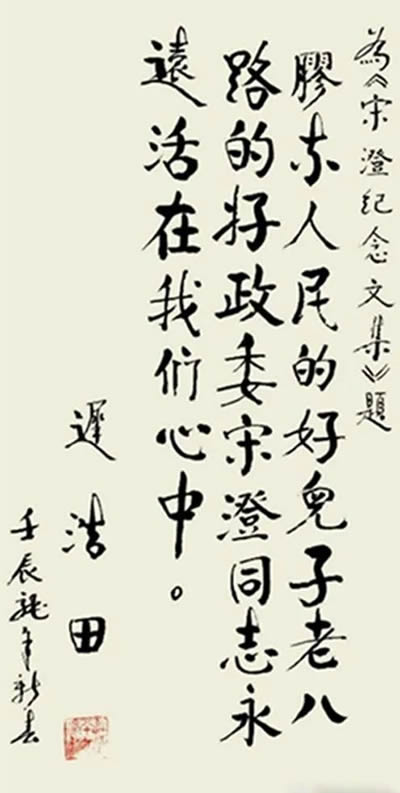 為《宋澄纪念文集》題
膠东人民的好兒子老八
路的好政委宋澄同志永
遠活在我们心中。
遲浩田
壬辰龍年新春